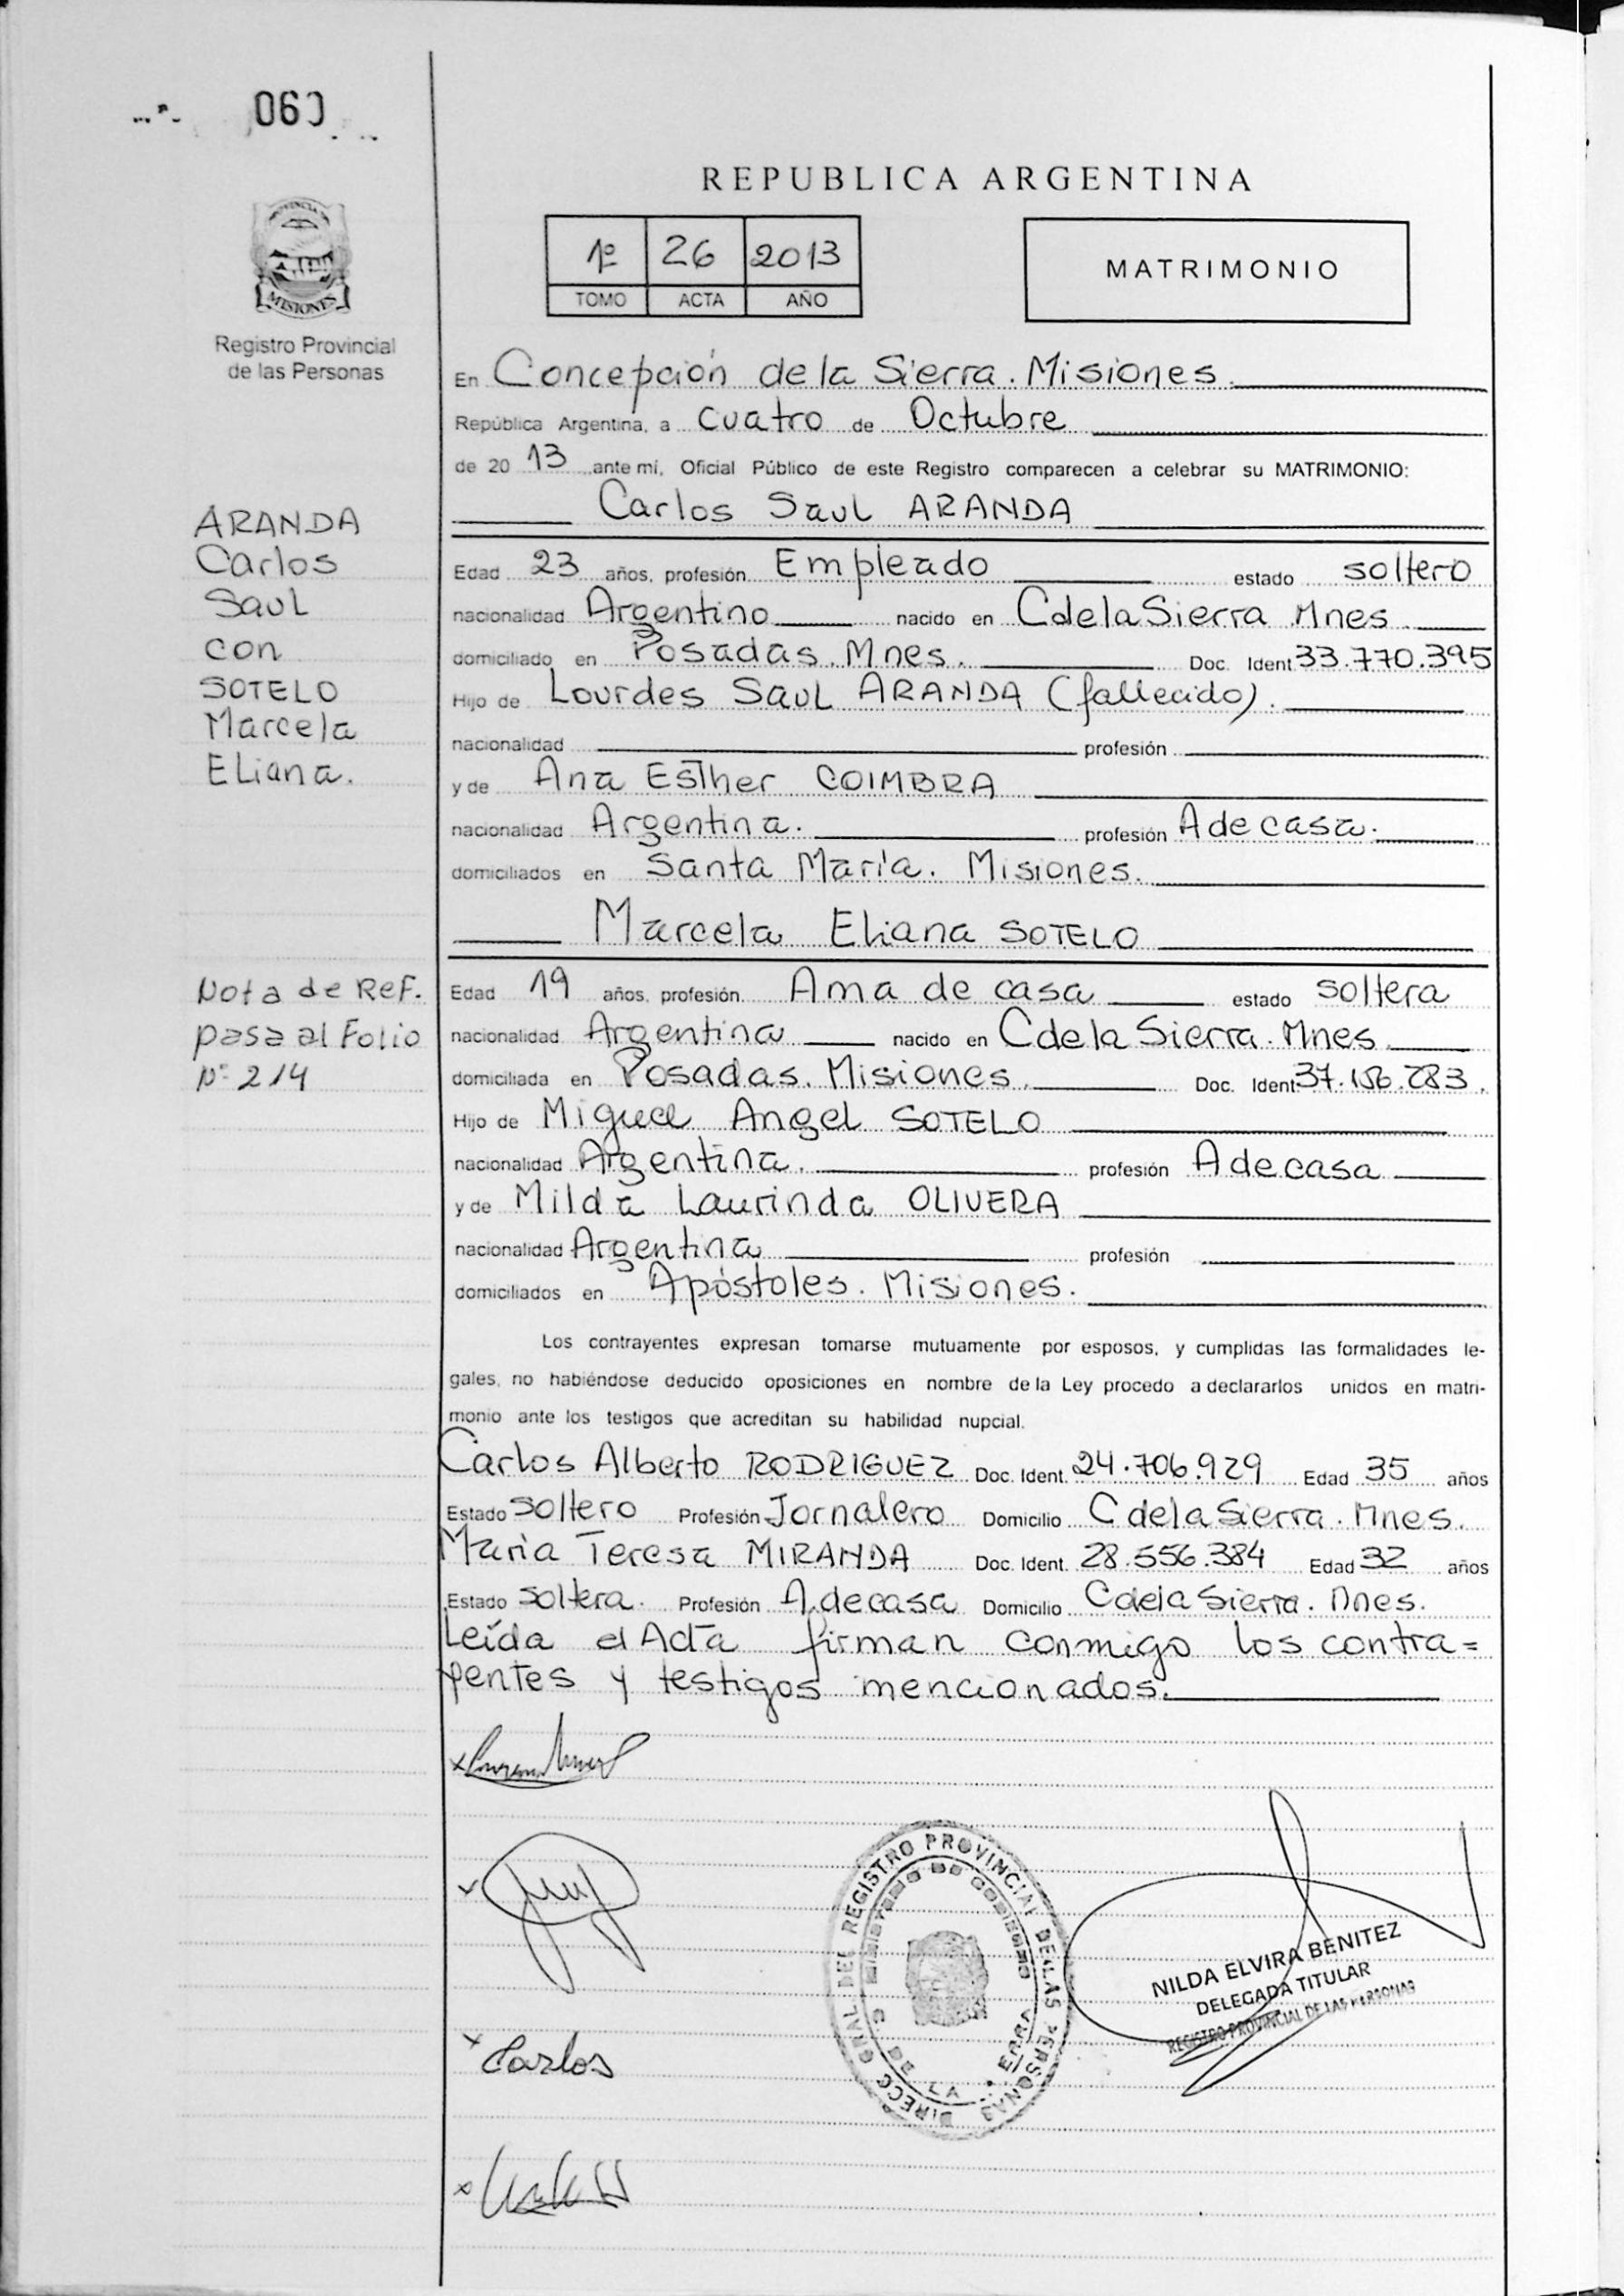 060
REPUBLICA ARGENTINA
1º 26 2013
TOMO ACTA AÑO
MATRIMONIO
PROVINCIA DE
MISIONES
Registro Provincial
de las Personas
En Concepción de la Sierra. Misiones.
República Argentina, a cuatro de Octubre
de 20 13 ante mí, Oficial Público de este Registro comparecen a celebrar su MATRIMONIO:
Carlos Saul ARANDA
ARANDA
Carlos
Saul
con
SOTELO
Marcela
Eliana.
Edad 23 años, profesión Empleado estado soltero
nacionalidad Argentino nacido en C de la Sierra Mnes.
domiciliado en Posadas. Mnes. Doc. Ident. 33.770.395
Hijo de Lourdes Saul ARANDA (fallecido).
nacionalidad profesión
y de Ana Esther COIMBRA
nacionalidad Argentina. profesión A de casa.
domiciliados en Santa María. Misiones.
Marcela Eliana SOTELO
Nota de Ref.
pasa al Folio
Nº 214
Edad 19 años, profesión Ama de casa estado soltera
nacionalidad Argentina nacido en C de la Sierra. Mnes.
domiciliada en Posadas. Misiones. Doc. Ident. 37.156.283.
Hijo de Miguel Angel SOTELO
nacionalidad Argentina. profesión A de casa
y de Milda Laurinda OLIVERA
nacionalidad Argentina profesión
domiciliados en Apóstoles. Misiones.
Los contrayentes expresan tomarse mutuamente por esposos, y cumplidas las formalidades le-
gales, no habiéndose deducido oposiciones en nombre de la Ley procedo a declararlos unidos en matri-
monio ante los testigos que acreditan su habilidad nupcial.
Carlos Alberto RODRIGUEZ Doc. Ident. 24.706.929 Edad 35 años
Estado soltero Profesión Jornalero Domicilio C de la Sierra. Mnes.
María Teresa MIRANDA Doc. Ident. 28.556.384 Edad 32 años
Estado soltera. Profesión A. de casa Domicilio C de la Sierra. Mnes.
Leída el Acta firman conmigo los contra=
yentes y testigos mencionados.
Carlos
DIRECC GRAL DEL REGISTRO PROVINCIAL DE LAS PERSONAS
MINISTERIO DE GOBIERNO
C. DE LA SIERRA
NILDA ELVIRA BENITEZ
DELEGADA TITULAR
REGISTRO PROVINCIAL DE LAS PERSONAS